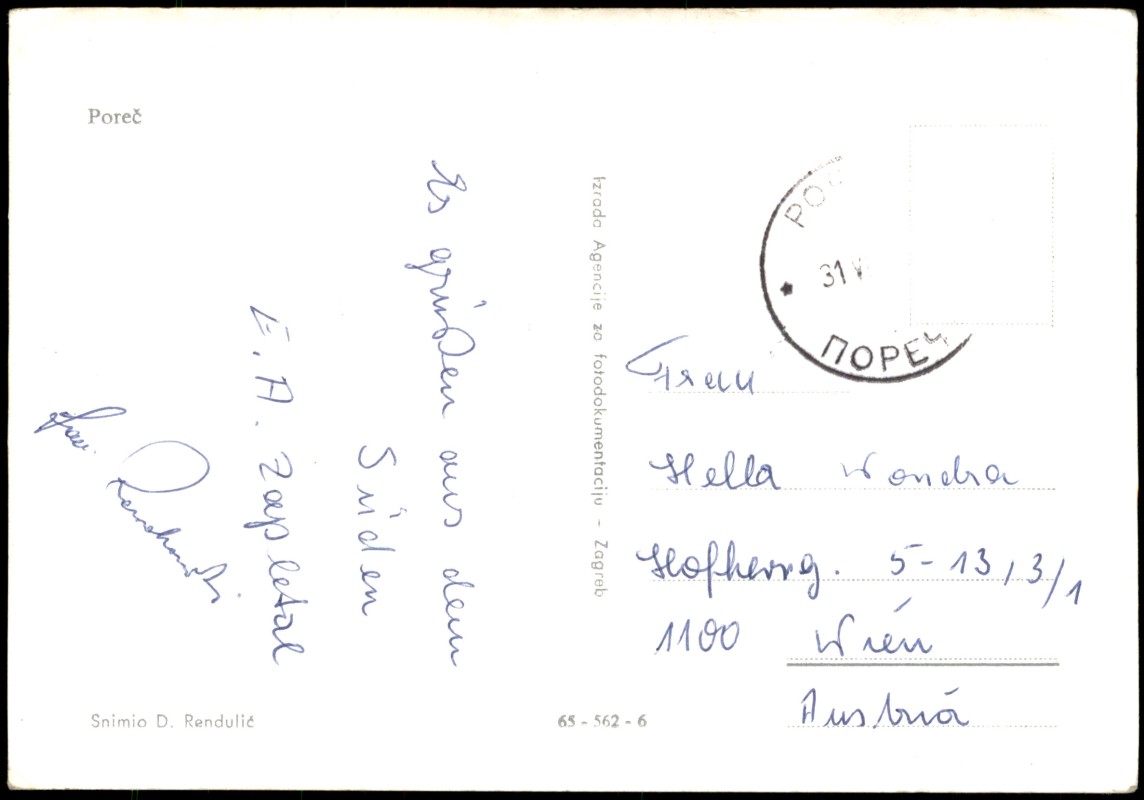 Poreč
Es grüßen aus dem
Süden
E. A. Zapletal
Izrada Agencije za fotodokumentaciju - Zagreb
31 V
ПОРЕЧ
Frau
Hella Wondra
5-13, 3/1
1100 Wien
Austria
Snimio D. Rendulić
65 - 562 - 6